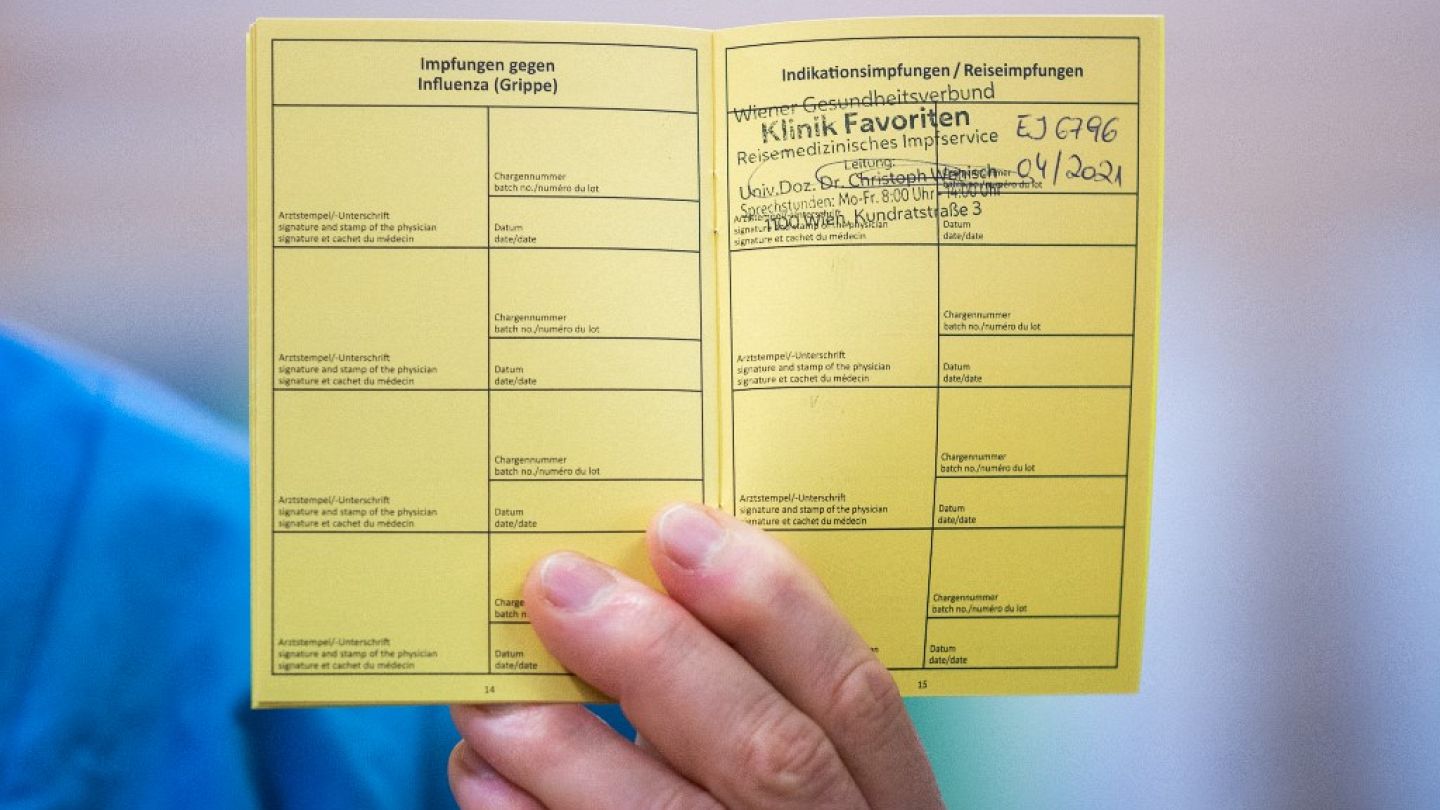 Impfungen gegen
Influenza (Grippe)
Chargennummer
batch no./numéro du lot
Arztstempel/-Unterschrift
signature and stamp of the physician
signature et cachet du médecin
Datum
date/date
Chargennummer
batch no./numéro du lot
Arztstempel/-Unterschrift
signature and stamp of the physician
signature et cachet du médecin
Datum
date/date
Chargennummer
batch no./numéro du lot
Arztstempel/-Unterschrift
signature and stamp of the physician
signature et cachet du médecin
Datum
date/date
Charge
batch n
Arztstempel/-Unterschrift
signature and stamp of the physician
signature et cachet du médecin
Datum
date/date
14
Indikationsimpfungen / Reiseimpfungen
Wiener Gesundheitsverbund
Klinik Favoriten
Reisemedizinisches Impfservice
Leitung:
Univ.Doz. Dr. Christoph Wenisch
Sprechstunden: Mo-Fr. 8:00 Uhr - 14:00 Uhr
1100 Wien, Kundratstraße 3
EJ 6796
04/2021
Arztstempel/-Unterschrift
signature and stamp of the physician
signature et cachet du médecin
Datum
date/date
Chargennummer
batch no./numéro du lot
Arztstempel/-Unterschrift
signature and stamp of the physician
signature et cachet du médecin
Datum
date/date
Chargennummer
batch no./numéro du lot
Arztstempel/-Unterschrift
signature and stamp of the physician
signature et cachet du médecin
Datum
date/date
Chargennummer
batch no./numéro du lot
Datum
date/date
15